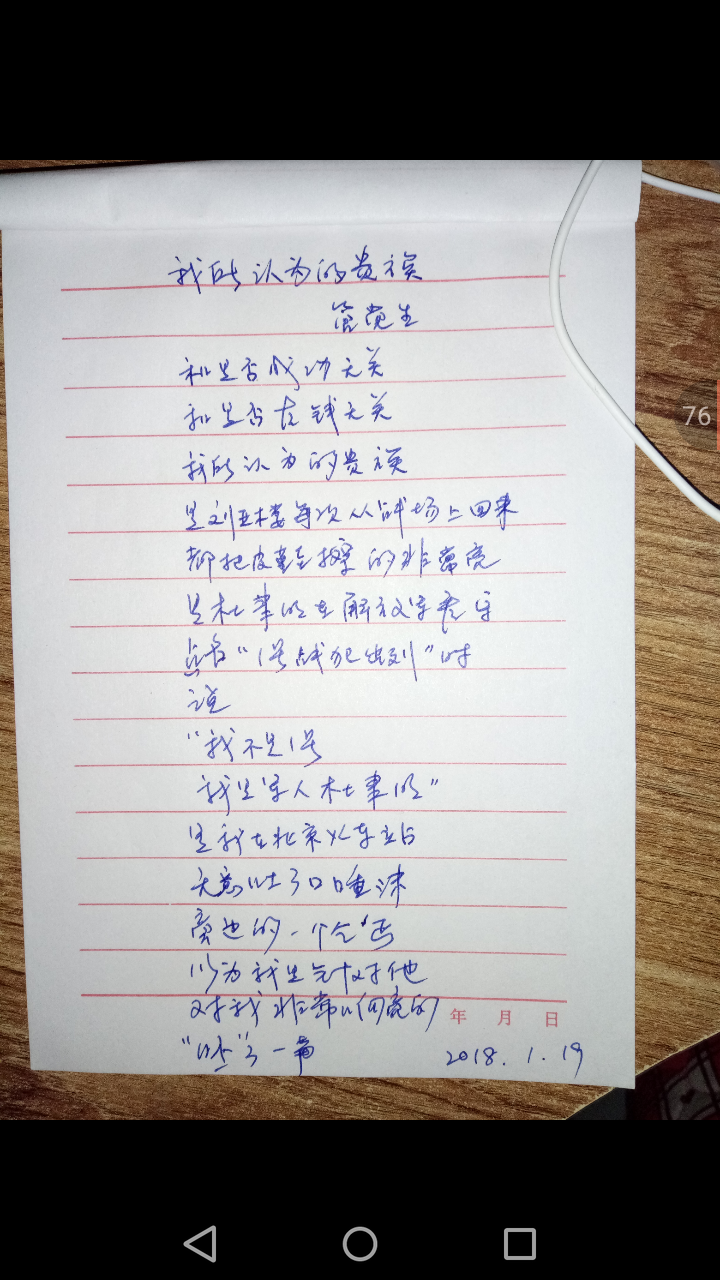 我所认为的贵族
管党生
和是否成功无关
和是否有钱无关
我所认为的贵族
是刘亚楼每次从战场上回来
都把皮鞋擦的非常亮
是杜聿明在解放军看守
点名“1号战犯出列”时
说
“我不是1号
我是军人杜聿明”
是我在北京火车站
无意吐了口唾沫
旁边的一个乞丐
以为我是针对他
对我非常响亮的
“呸”了一声
年 月 日
2018.1.19
76